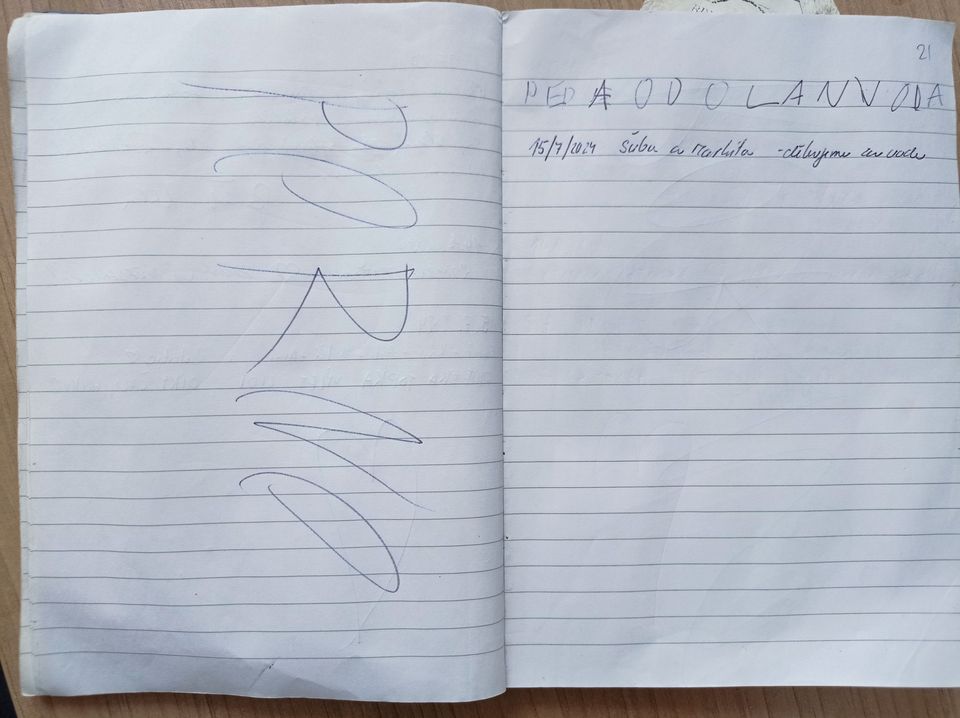 PORNO
21
PEPA OD OLANV ODA
15/7/2024 Šuba a Markéta - děkujeme za vodu